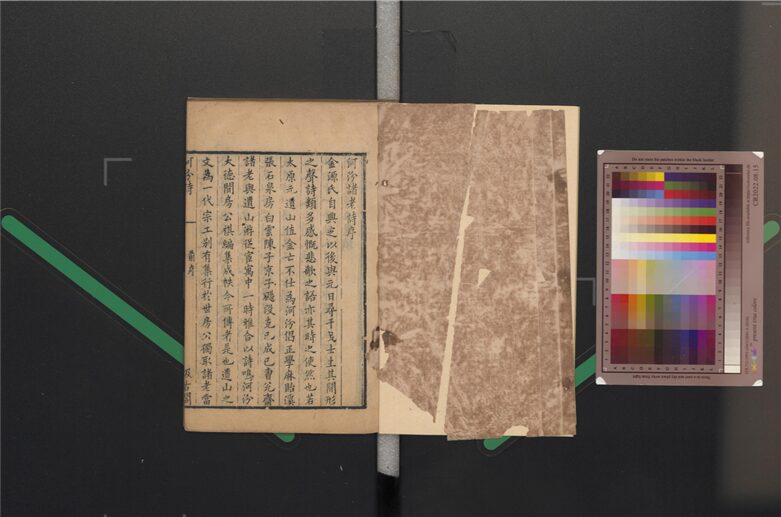 河汾諸老詩序
金源氏自興定以後與元日尋干戈士生其間形
之聲詩類多感慨悲歌之語亦其時之使然也若
太原元遺山值金亡不仕為河汾倡正學麻貽溪
張石泉房白雲陳子京子颺段克己成己曹兌齋
諸老與遺山游從宦寓中一時雅合以詩鳴河汾
大德間房公祺編集成帙今所傳者是也遺山之
文為一代宗工別有集行於世房公獨取諸老當
河汾詩
舊序
汲古閣
Do not store the patches within the black border
CR2022.08.15